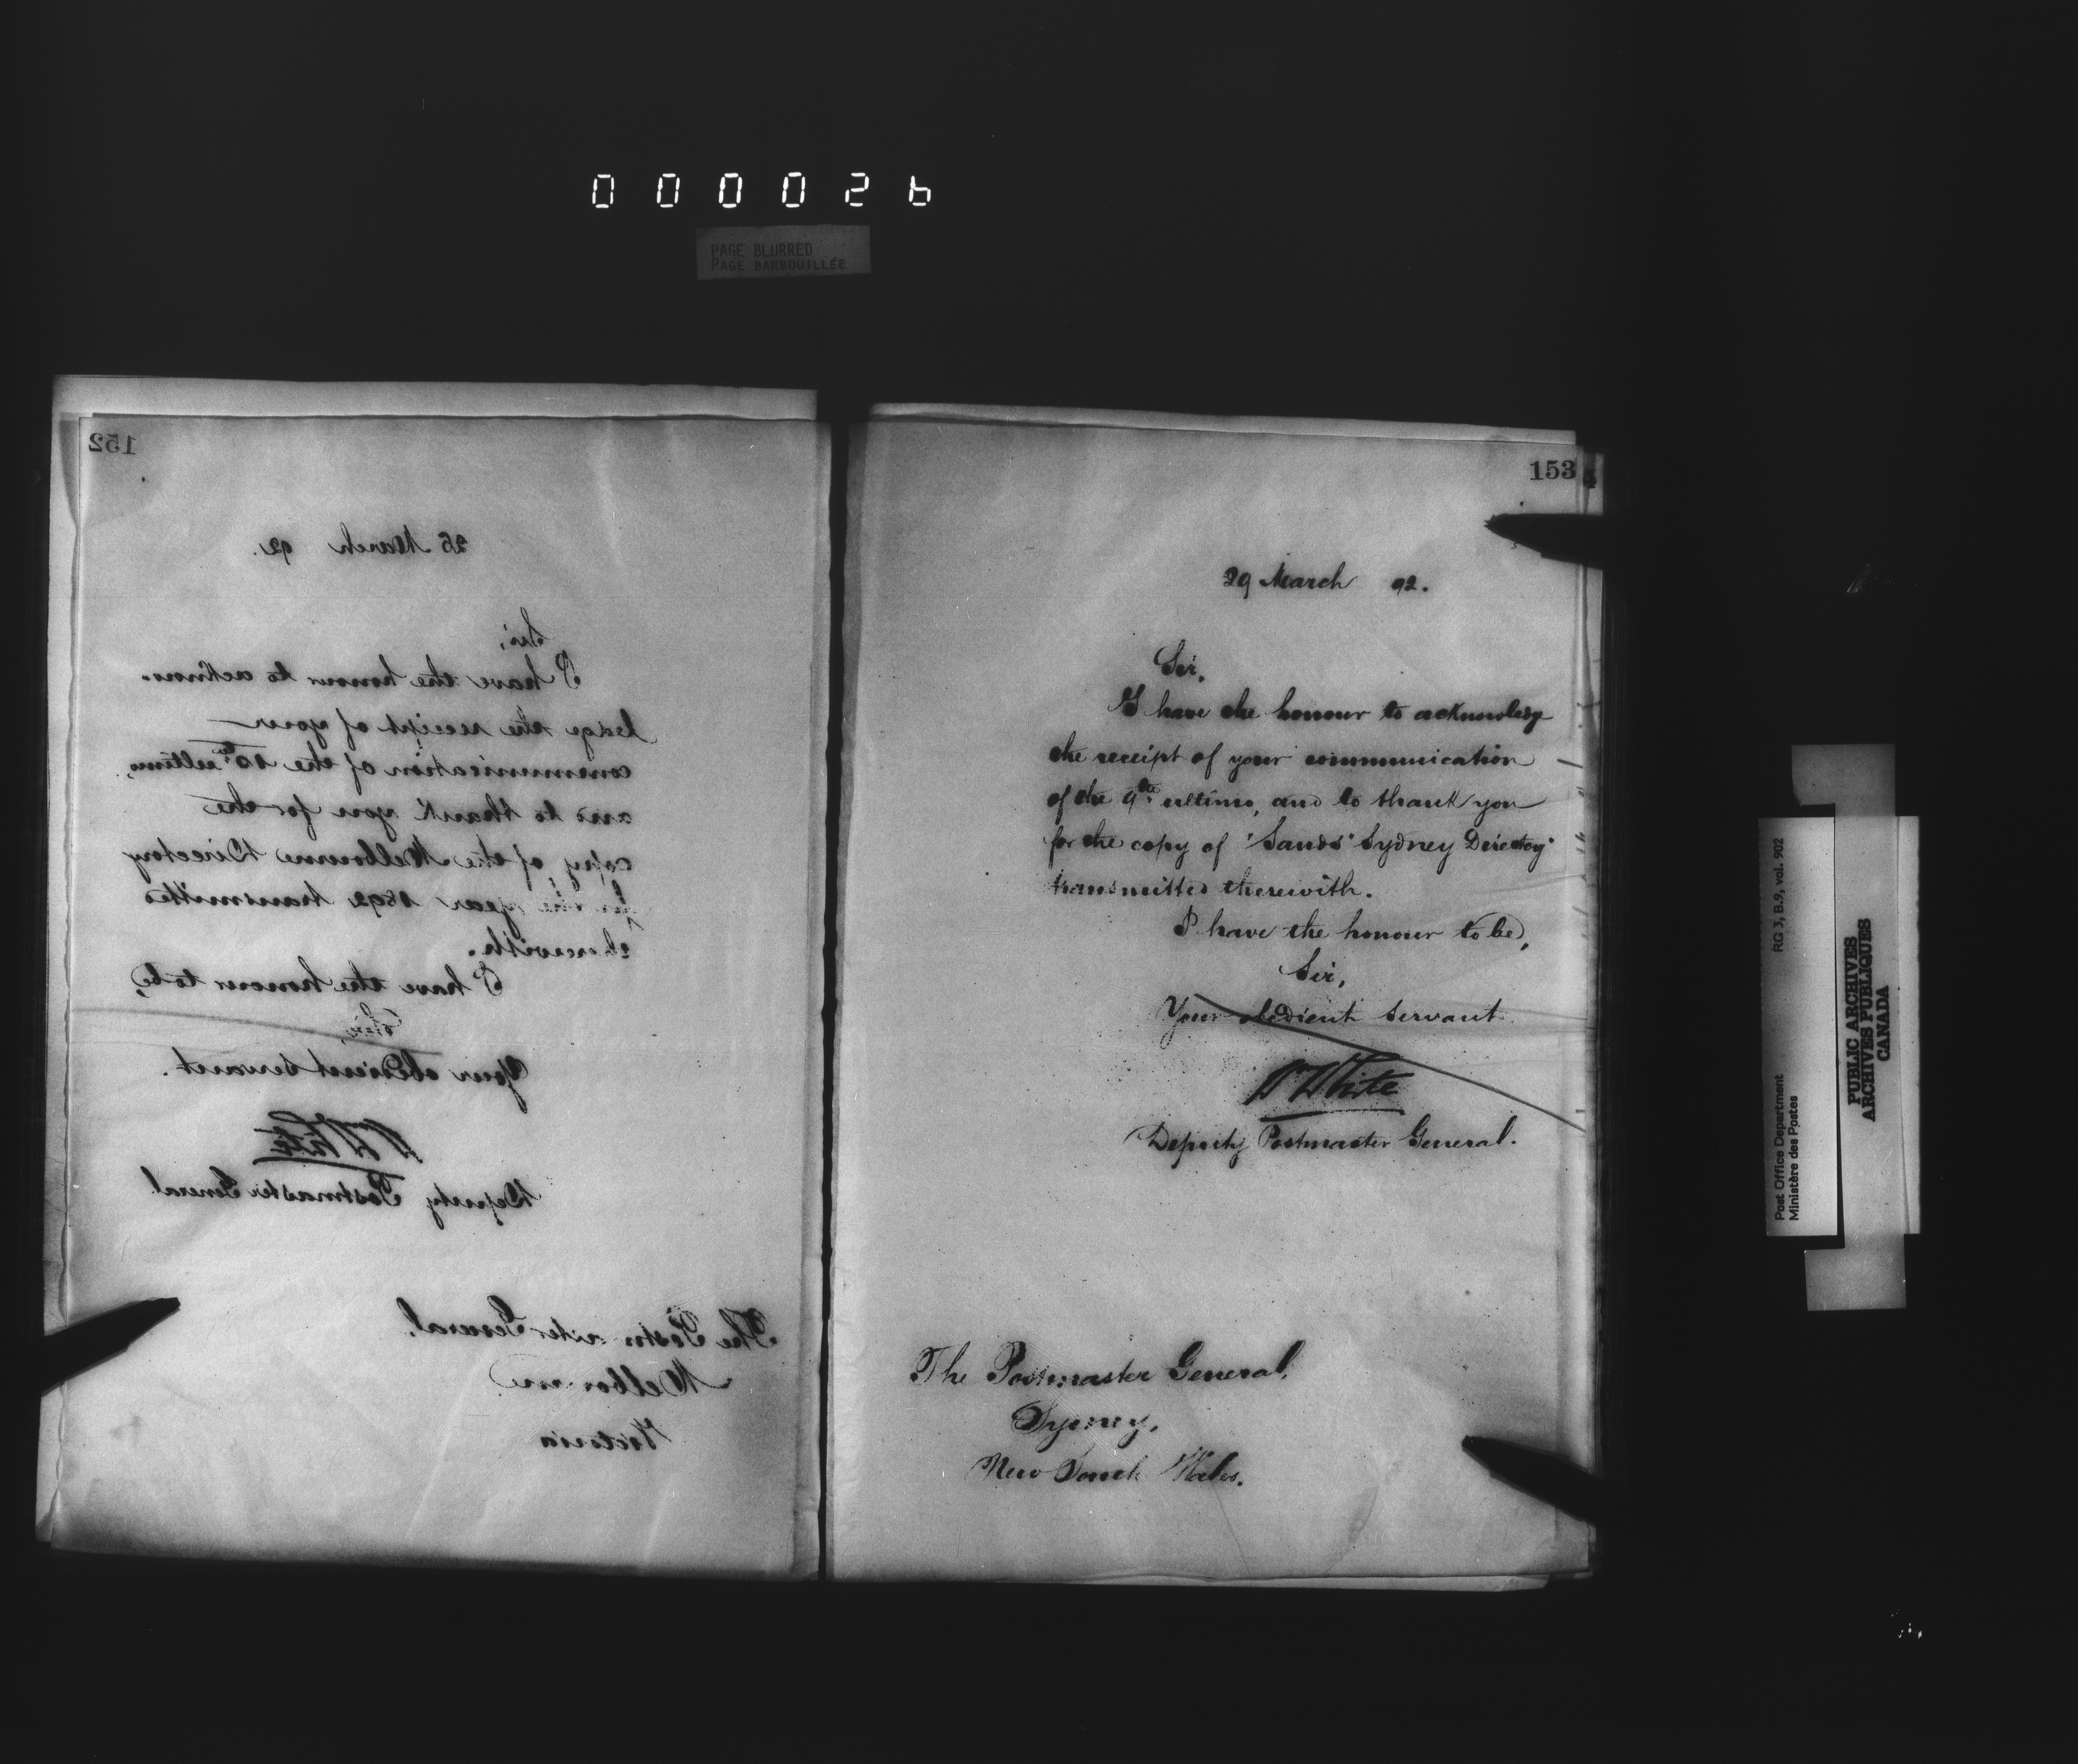 000026
PAGE BLURRED
PAGE BARBOUILLÉE
152
26 March 92.
Sir,
I have the honour to acknow-
ledge the receipt of your
communication of the 10th ultimo,
and to thank you for the
copy of the Melbourne Directory
for the year 1892 transmitted
therewith.
I have the honour to be,
Sir,
Your obedient servant.
W White
Deputy Postmaster General
The Postmaster General,
Melbourne
Victoria
153
29 March 92.
Sir,
I have the honour to acknowledge
the receipt of your communication
of the 9th ultimo, and to thank you
for the copy of "Sands' Sydney Directory"
transmitted therewith.
I have the honour to be,
Sir,
Your obedient servant
W White
Deputy Postmaster General.
The Postmaster General,
Sydney,
New South Wales.
RG 3, B.9, vol. 902
Post Office Department
Ministère des Postes
PUBLIC ARCHIVES
ARCHIVES PUBLIQUES
CANADA